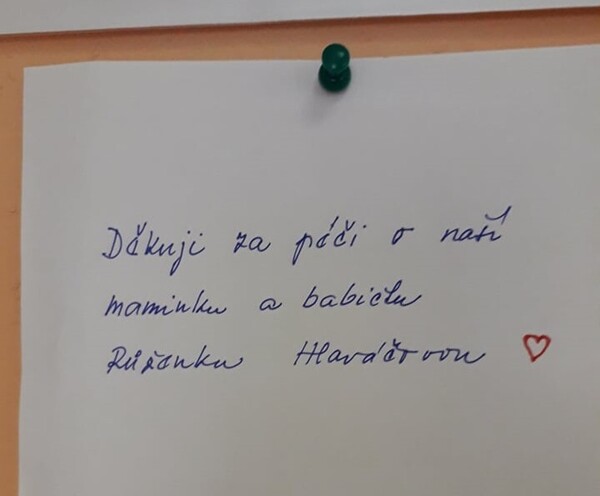 Děkuji za péči o naší
maminku a babičku
Růženku Hlaváčovou